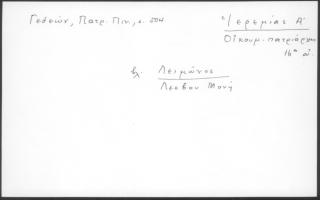 Γεδεών, Πατρ. Πιν., σ. 504.
Ἱερεμίας Α'
Οἰκουμ. πατριάρχης
16ος αἰ.
βλ. Λειμῶνος
Λέσβου Μονή